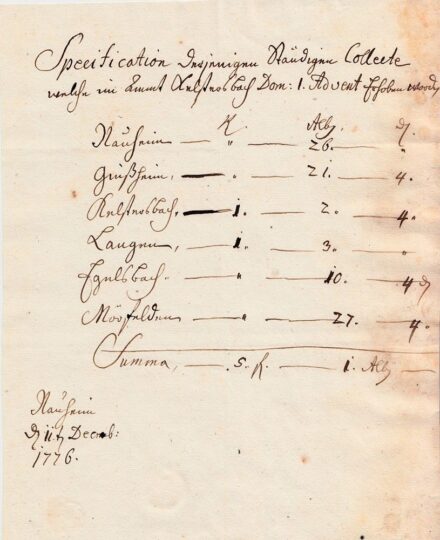 Specification desjenigen Ständigen Collecte
welche im Ammt Kelsterbach Dom: 1. Advent Erhoben worden
fl Alb. d.
Nauheim — " — 26. — "
Ginßheim, — " — 21. — 4.
Kelsterbach, — 1. — 2. — 4.
Langen, — 1. — 3. — "
Egelsbach. — " — 10. — 4 d
Mörfelden — " — 27. — 4.
Summa, — 5. fl. — 1. Alb —
Nauheim
d 11t Decemb:
1776.